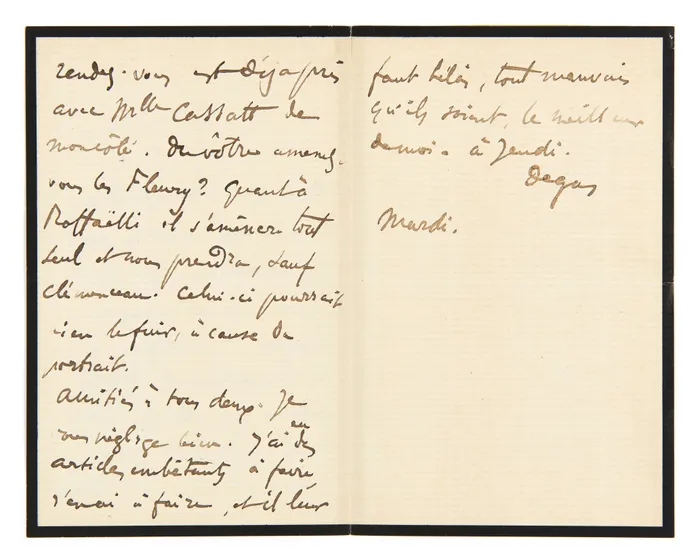 rendez-vous est déjà pris
avec Mlle Cassatt de
mon côté. Du vôtre amenez-
vous les Fleury? Quant à
Raffaëlli il s'amènera tout
seul et nous prendra, sauf
Clémenceau. Celui-ci pourrait
bien le fuir, à cause du
portrait.
Amitiés à tous deux. Je
vous néglige bien. J'ai eu des
articles embêtants à faire
j'en ai à faire, et il leur
faut hélas, tout mauvais
qu'ils soient, le meilleur
de moi. à Jeudi.
Degas
Mardi.